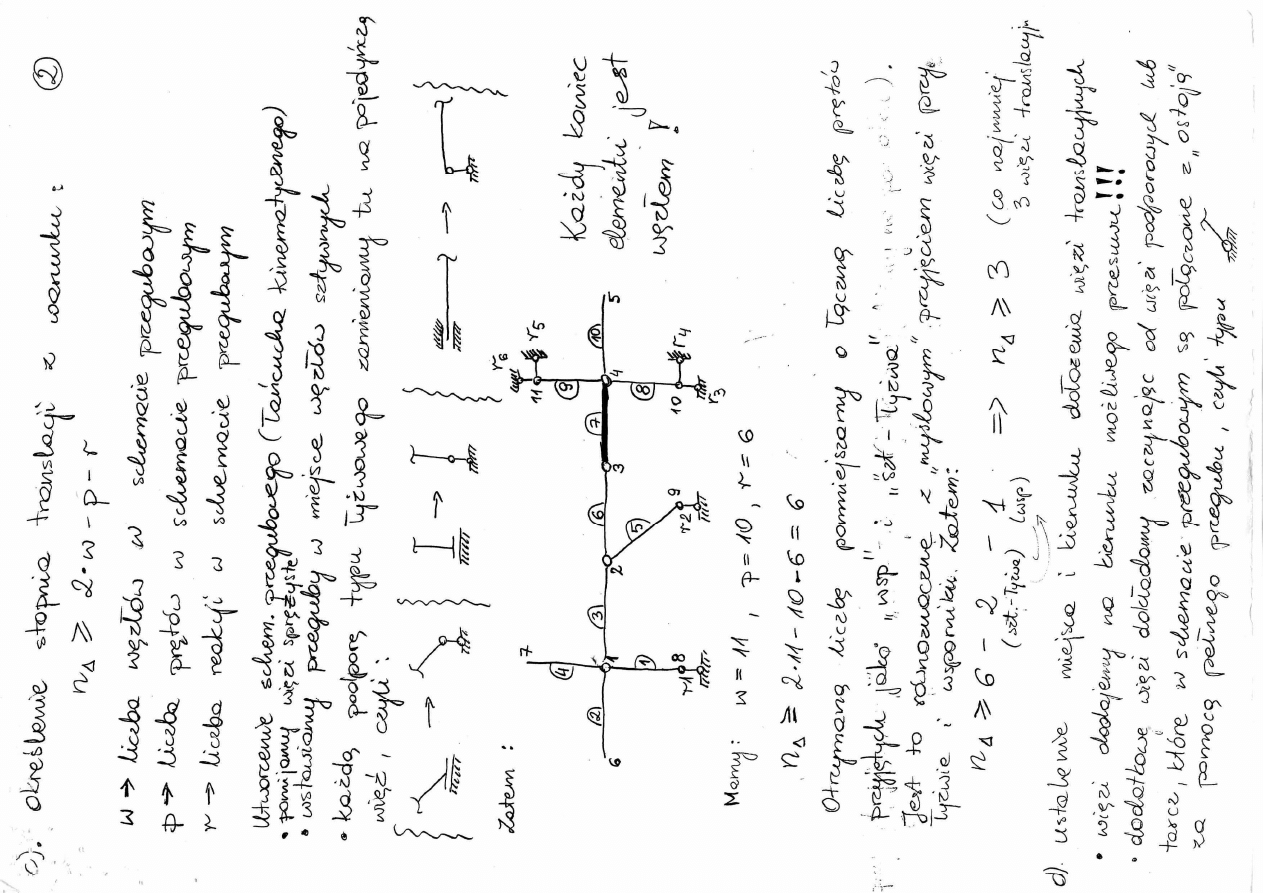 c). określenie stopnia translacji z warunku :
②
n△ ⩾ 2·w - p - r
w → liczba węzłów w schemacie przegubowym
p → liczba prętów w schemacie przegubowym
r → liczba reakcji w schemacie przegubowym
Utworzenie schem. przegubowego (łańcucha kinematycznego)
• pomijamy więzi sprężyste
• wstawiamy przeguby w miejsce węzłów sztywnych
• każdą podporę typu łyżwowego zamieniamy tu na pojedyńczą
więź, czyli :
Zatem :
6
②
7
④
1
①
r1
8
③
2
⑤
r2
9
⑥
3
⑦
4
⑨
11
r6
r5
⑧
10
r4
r3
⑩
5
Każdy koniec
elementu jest
węzłem !
Mamy: w = 11 , p = 10 , r = 6
n△ ⩾ 2·11 - 10 - 6 = 6
Otrzymaną liczbę pomniejszamy o łączną liczbę prętów
przyjętych jako "wsp" i "szt-łyżwa"
Jest to równoznaczne z "myślowym" przyjęciem więzi przy
łyżwie i wsporniku. Zatem:
n△ ⩾ 6 - 2 - 1 => n△ ⩾ 3 (co najmniej
(szt.-łyżwa) (wsp)
3 więzi translacyjn
d). ustalenie miejsca i kierunku dołożenia więzi translacyjnych
• więzi dodajemy na kierunku możliwego przesuwu!!!
• dodatkowe więzi dokładamy zaczynając od więzi podporowych lub
tarcz, które w schemacie przegubowym są połączone z "ostoją"
za pomocą pełnego przegubu, czyli typu